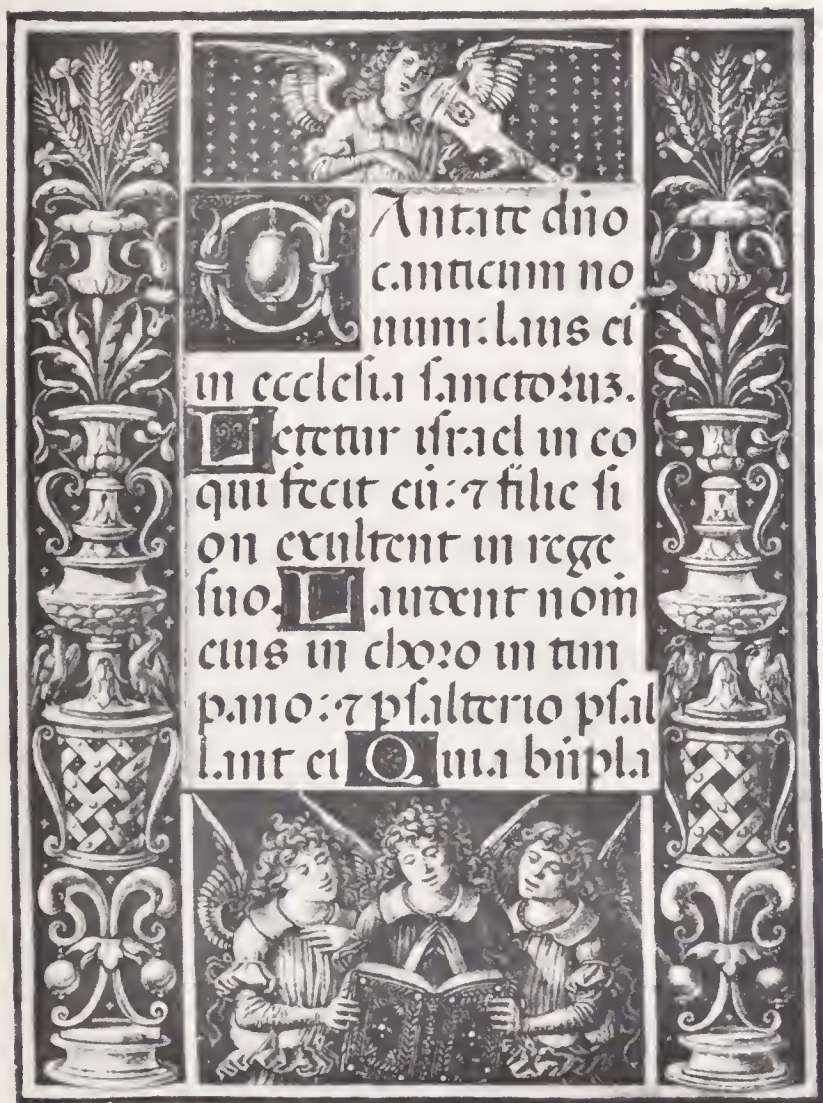 CAntate dño
canticum no
uum: laus ei
in ecclesia sanctoꝛuꝫ.
Letetur israel in eo
qui fecit eū: ⁊ filie si
on exultent in rege
suo. Laudent nom̄
eius in choꝛo in tim
pano: ⁊ psalterio psal
lant ei Quia bn̄pla